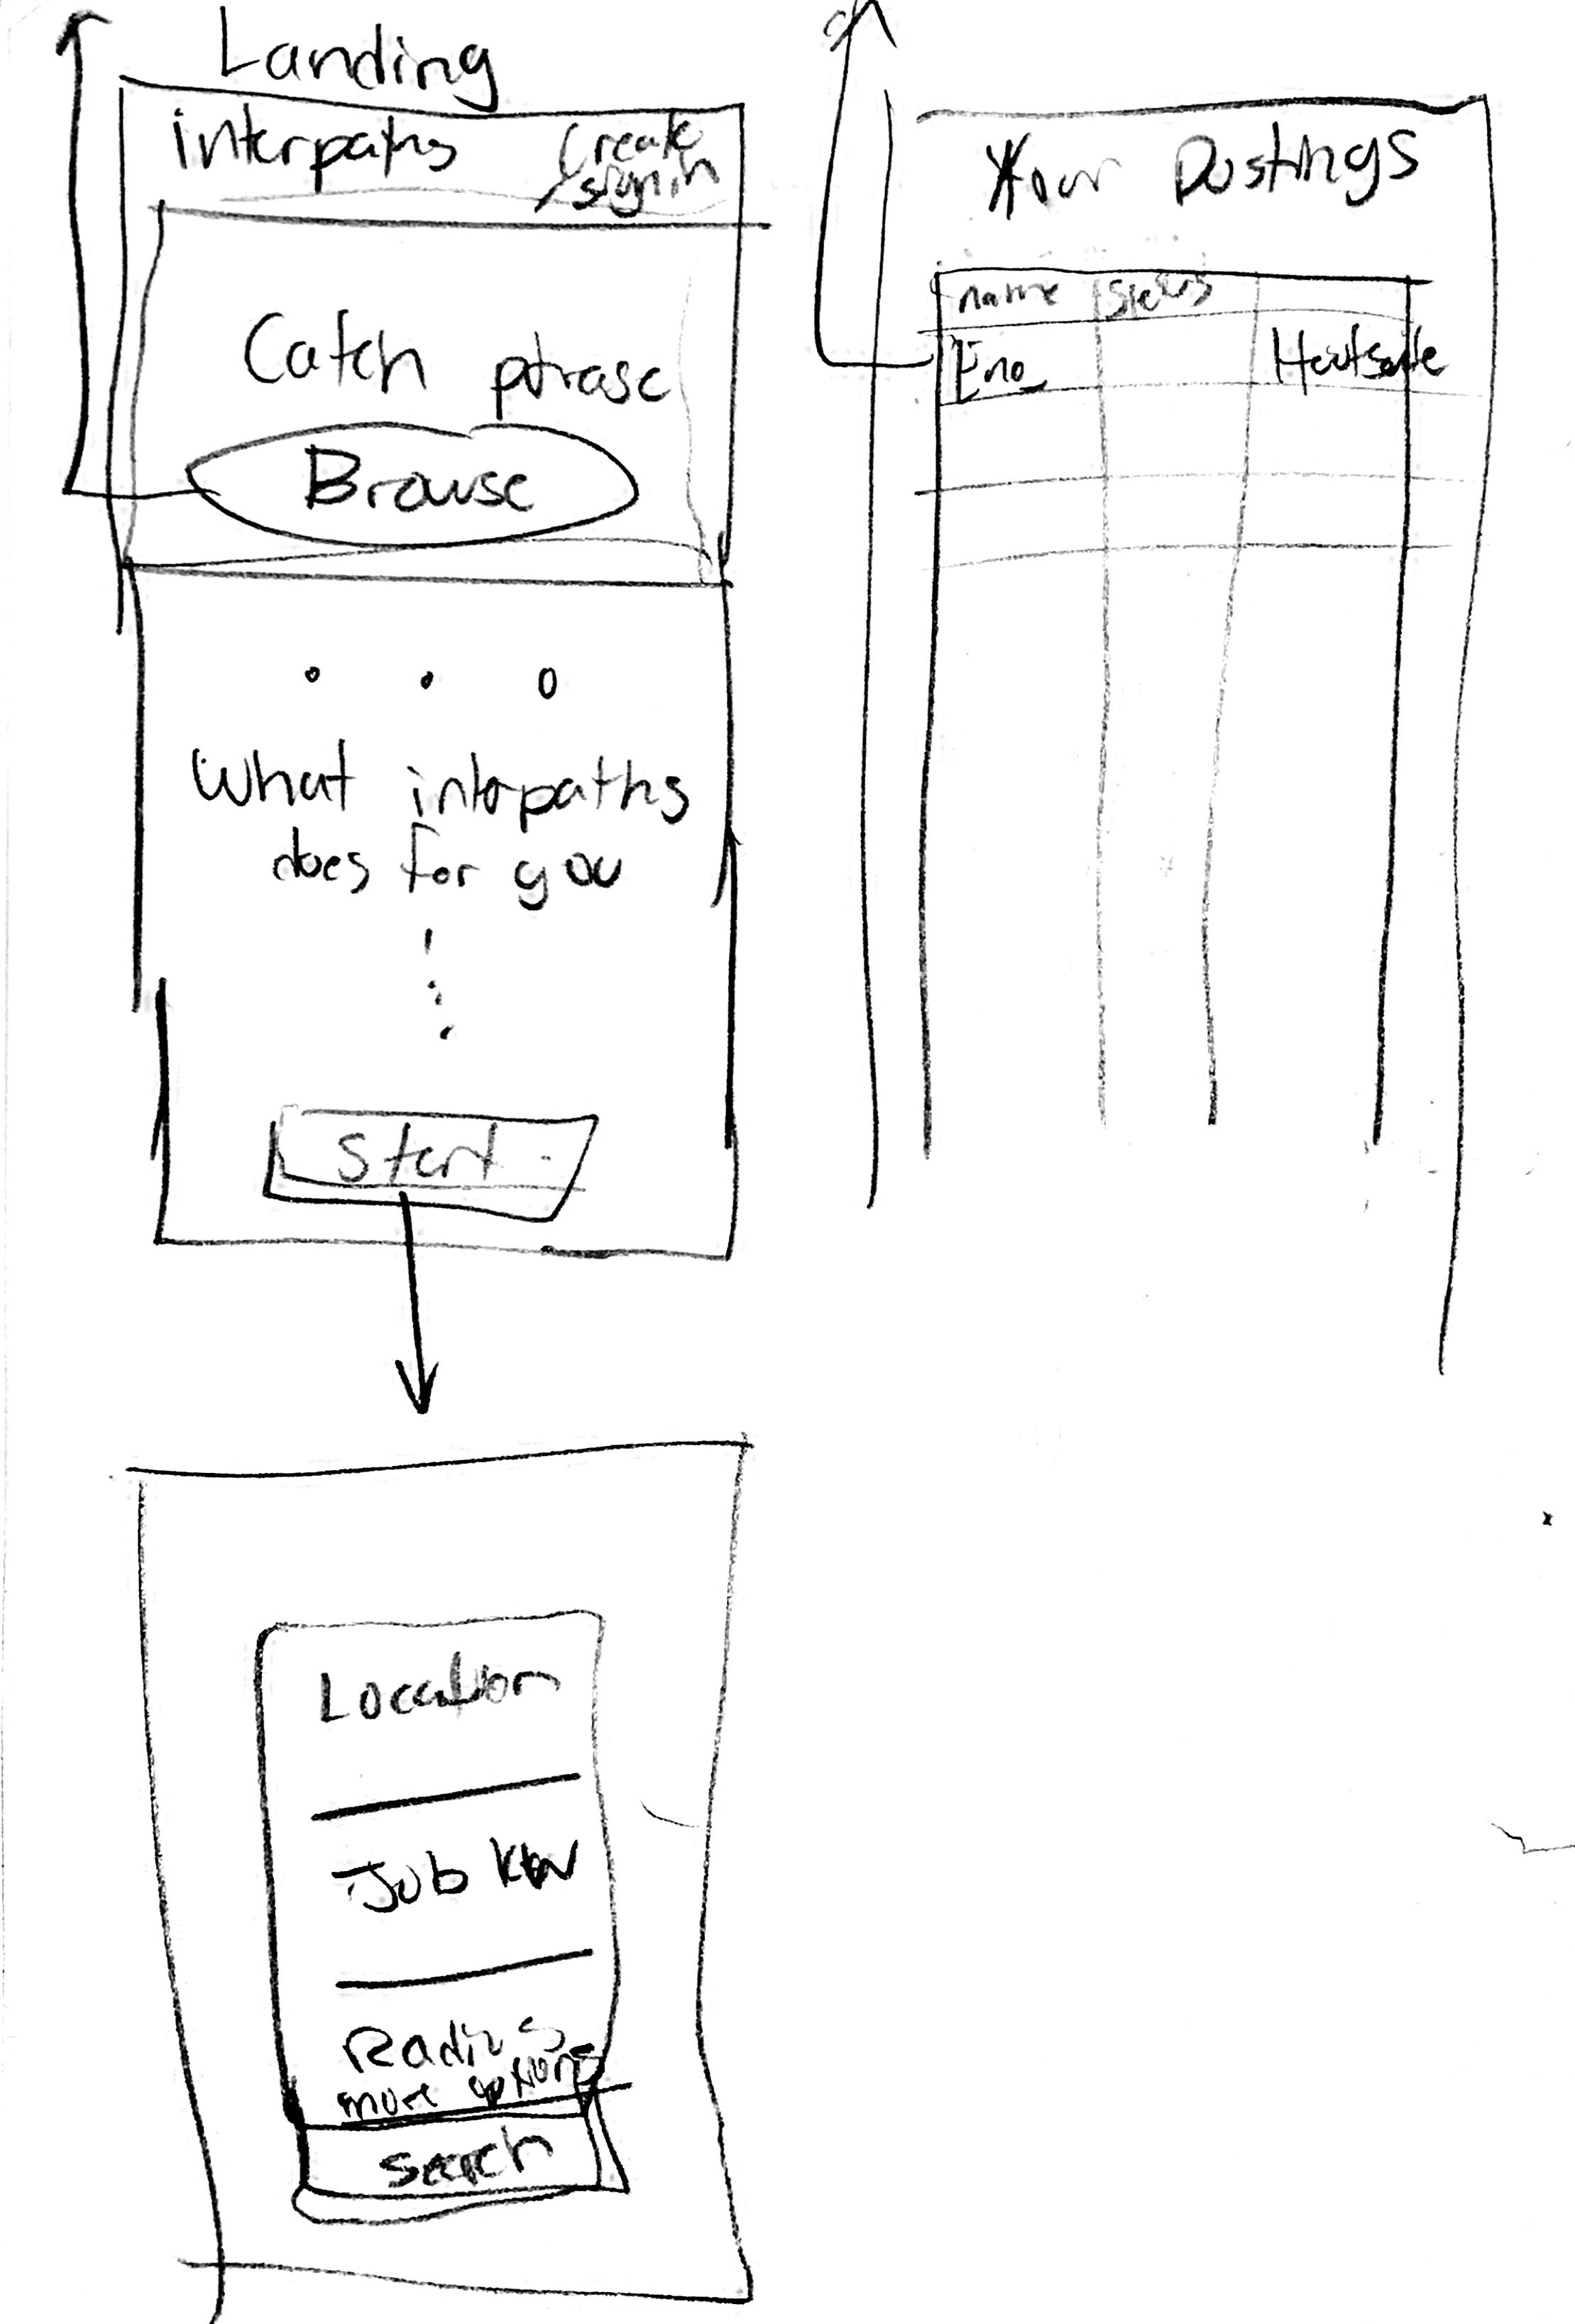 Landing
interpaths
Create
/signin
Catch phrase
Browse
What interpaths
does for you
Start
Location
Job KW
Radius
more options
Search
Your Postings
name status